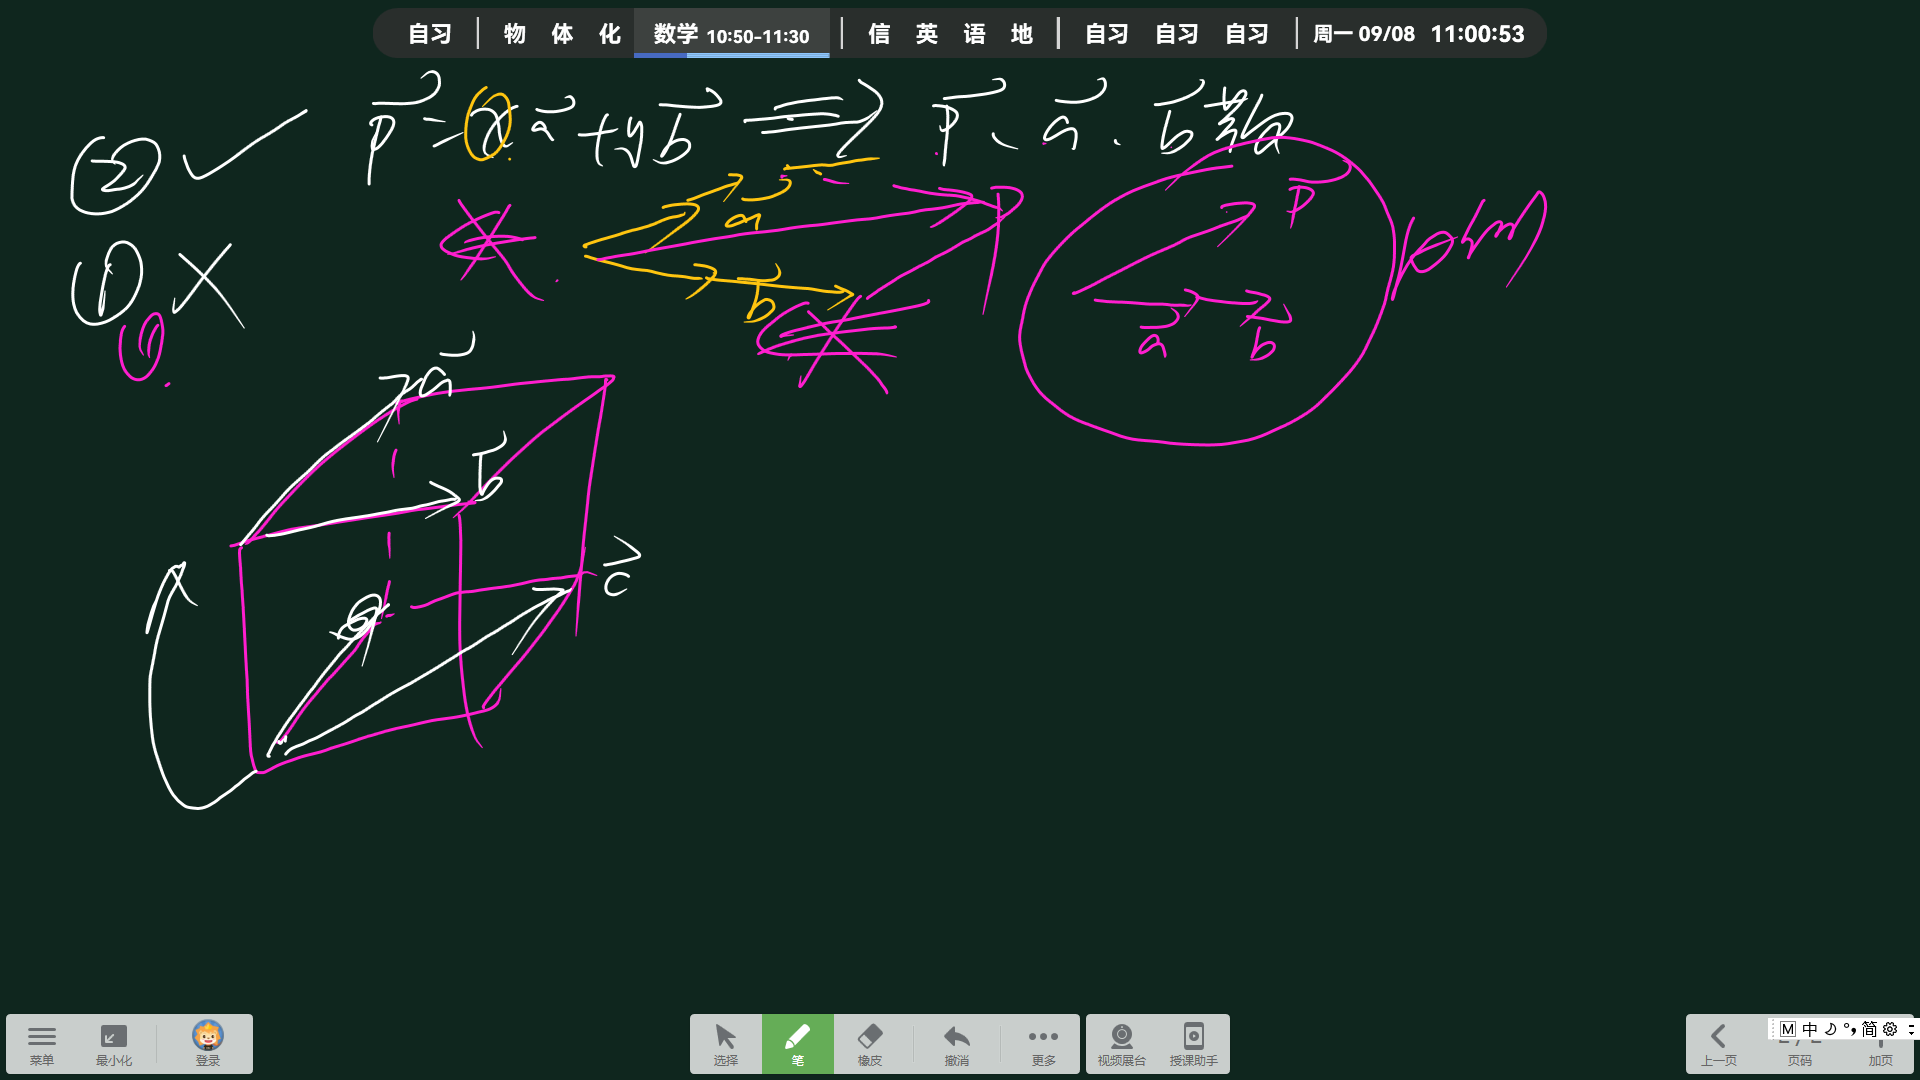 自习 | 物 体 化 数学 10:50-11:30 | 信 英 语 地 | 自习 自习 自习 | 周一 09/08 11:00:53
② ✓ p = xa + yb ⇒ p、a、b 共面
① ×
a
b
p
a b
a
b
c
菜单 最小化 登录 选择 笔 橡皮 撤消 更多 视频展台 授课助手 上一页 页码 加页
M 中 简